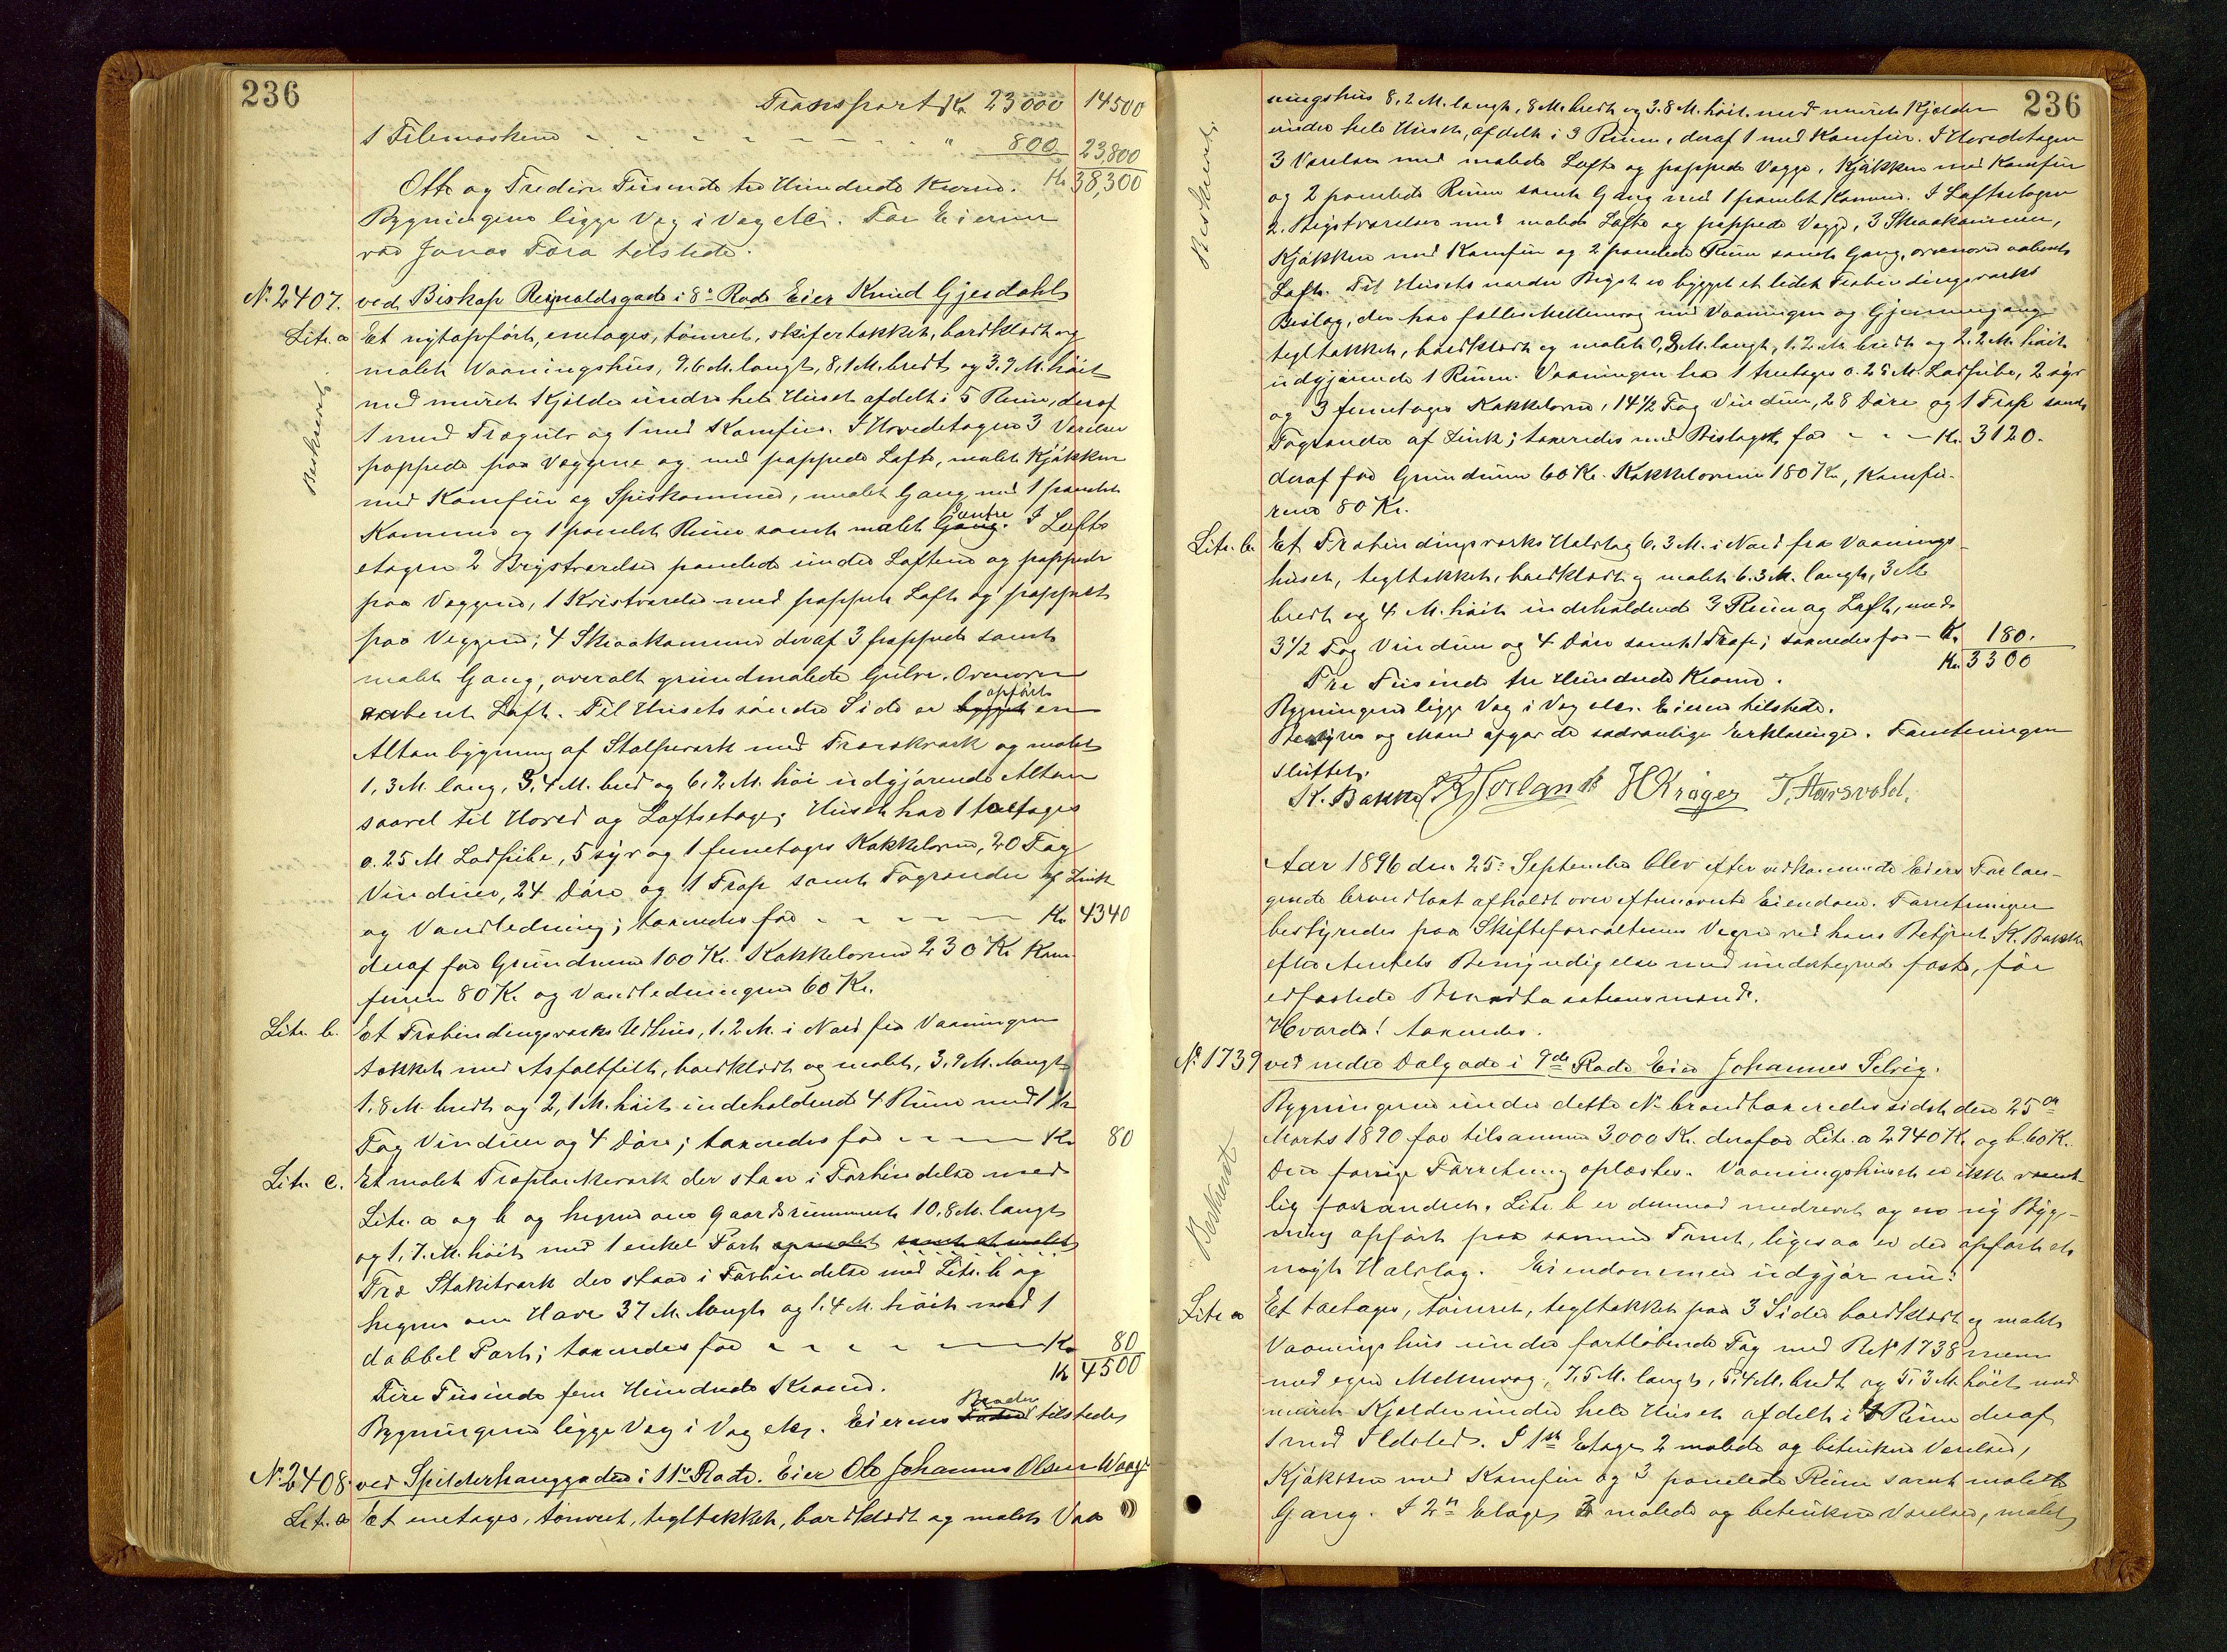 236
Transport Kr. 23000 14500
1 Filemaskine " 800 23,800
Otte og Tredive Tusinde tre Hundrede Kroner. Kr. 38,300
Bygningene ligge Væg i Væg etc. For Eierne
var Jonas Tora tilstede.
No 2407. ved Biskop Reinaldsgade i 8de Rode Eier Knud Gjesdahl
Litr. a Et nyt opført, enetages, tømret, skifertækket, bordklædt og
malet Vaaningshus, 9,6 M. langt, 8,1 M. bredt og 3.9 M. høit
Beskrevet.
med muret Kjelder under hele Huset afdelt i 5 Rum, deraf
1 med Trægulv og 1 med Komfur. I Hovedetagen 3 Værelser
pappede paa Væggene og med pappede Lofte, malet Kjøkken
med Komfur og Spiskammer, malet Gang med 1 panelet
Kammer og 1 panelet Rum samt malet Gang. Søndre I Lofts
etagen 2 Brystværelser panelede under Loftene og pappede
paa Væggene, 1 Kvistværelse med pappet Loft og pappet
paa Væggene; 4 Skraakammere deraf 3 pappede samt
malet Gang, overalt grundmalede Gulve. Ovenover
aabent Loft. Til Husets søndre Side er bygget opført en
Altanbygning af Stolpeværk med Træværk og malet
1,3 M. lang, 3,4 M. bred og 6,2 M. høi udgjørende Altan
saavel til Hoved og Loftsetage; Huset har 1 toetages
a. 25 M Ladpibe, 5 syv og 1 femetages Kakkelovne, 20 Fag
Vinduer, 24 Døre og 1 Trap samt Tagrender af Zink
og Vandledning; taxeredes for Kr 4340
deraf for Grundmur 100 Kr. Kakkelovne 230 Kr. Kom-
furene 80 Kr. og Vandledningen 60 Kr.
Litr. b. Et Træbindingsværks Udhus, 1.2 M. i Nord fra Vaaningen
tækket med Asfaltfilt, bordklædt og malet, 3,9 M. langt
1.8 M. bredt og 2,1 M. høit indeholdende 4 Rum med 1 1/2
Fag Vinduer og 4 Døre; taxeredes for Kr 80
Litr. c. Et malet Træplankeværk der staar i Forbindelse med
Litr. a og b og hegner om Gaardsrummet 10.8 M. langt
og 1,7 M. høit med 1 enkel Port og malet samt et malet
Træ Stakitværk der staar i Forbindelse med Litr. b og
hegner om Have 37 M. langt og 1.4 M. høit med 1
dobbel Port; taxeredes for Kr 80
Kr 4500
Fire Tusinde fem Hundrede Kroner.
Bygningene ligge Væg i Væg etc. Eierens Fader Broder tilstede.
No 2408. ved Spilderhauggaden i 11te Rode. Eier Ole Johannes Olsen Waage
Litr. a Et enetages, tømret, tegltækket, bordklædt og malet Vaa
236
ningshus 8.2 M. langt, 8 M. bredt og 3.8 M. høit med muret Kjælder
under hele Huset, afdelt i 3 Rum, deraf 1 med Komfur. I Hovedetagen
3 Værelser med malede Lofte og pappede Vægge, Kjøkken med Komfur
og 2 panelede Rum samt Gang med 1 panelet Kammer. I Loftsetagen
Beskrevet.
2 Brystværelser med malede Lofte og pappede Vægge, 3 Skraakammere,
Kjøkken med Komfur og 2 panelede Rum samt Gang, ovenover aabent
Loft. Til Husets nordre Bryst er bygget et lidet Træbindingsværks
Bislag, der har fælles Mellemvæg med Vaaningen og Gjennemgang
tegltækket, bordklædt og malet 0,8 M. langt, 1.2 M. bredt og 2.2 M. høit
udgjørende 1 Rum. Vaaningen har 1 treetages a. 25 M. Ladpibe, 2 syv
og 3 femetages Kakkelovne, 14 1/2 Fag Vinduer, 28 Døre og 1 Trap samt
Tagrender af Zink; taxeredes med Bislaget for Kr. 3120.
deraf for Grundmur 60 Kr. Kakkelovnene 180 Kr, Komfu-
rene 80 Kr.
Litr. b. Et Træbindingsværks Halvtag 6.3 M. i Nord fra Vaanings-
huset, tegltækket, bordklædt og malet 6.3 M. langt, 3 M
bredt og 4 M. høit indeholdende 3 Rum og Loft, med
3 1/2 Fag Vinduer og 4 Døre samt 1 Trap; taxeredes for Kr. 180.
Kr. 3300
Tre Tusinde tre Hundrede Kroner.
Bygningene ligge Væg i Væg etc. Eieren tilstede.
Bestyrer og Mænd afgav de sædvanlige Erklæringer. Forretningen
sluttet.
K. Bakke R Torland H Krøger T. Hausvold.
Aar 1896 den 25de September blev efter vedkommende Eiers Forlan-
gende brandtaxt afholdt over efternævnte Eiendom. Forretningen
bestyredes paa Skifteforvalterens Vegne ved hans Betjent K. Bakke
efter Amtets Bemyndigelse med undertegnede faste, før
edfæstede Brandtaxationsmænd.
Hvorda! taxeredes.
No 1739 ved nedre Dalgade i 9de Rode Eier Johannes Selvig.
Bygningene under dette No brandtaxeredes sidst den 25de
Marts 1890 for tilsammen 3000 Kr. deraf for Litr. a 2940 Kr og b 60 K.
Beskrevet
Den forrige Forretning oplæstes. Vaaningshuset er ikke væsent-
lig forandret. Litr. b er derimod nedrevet og en ny Byg-
ning opført paa samme Tomt, ligesaa er der opført et
nyt Halvtag. Eiendommen udgjør nu:
Litr. a Et toetages, tømret, tegltækket paa 3 Sider bordklædt og malet
Vaaningshus under fortløbende Tag med Br No 1738 men
med egen Mellemvæg, 7,5 M. langt, 5,4 M. bredt og 5,3 M. høit med
muret Kjælder under hele Huset afdelt i Rum deraf
1 med Ildsted. I 1ste Etage 2 malede og betrukne Værelser,
Kjøkken med Komfur og 3 panelede Rum samt malet
Gang. I 2den Etage 2 malede og betrukne Værelser, malet